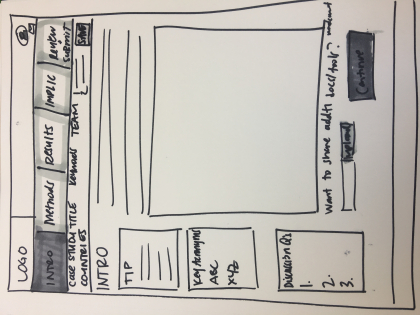 LOGO
INTRO
Methods
RESULTS
IMPLIC
Review
Submit
CASE STUDY TITLE Keywords TEAM
COUNTRIES
SAVE
INTRO
TIP
Key Acronyms
ABC
XYZ
Discussion Qs
1.
2.
3.
Want to share addtl docs/tools?
Upload
Continue